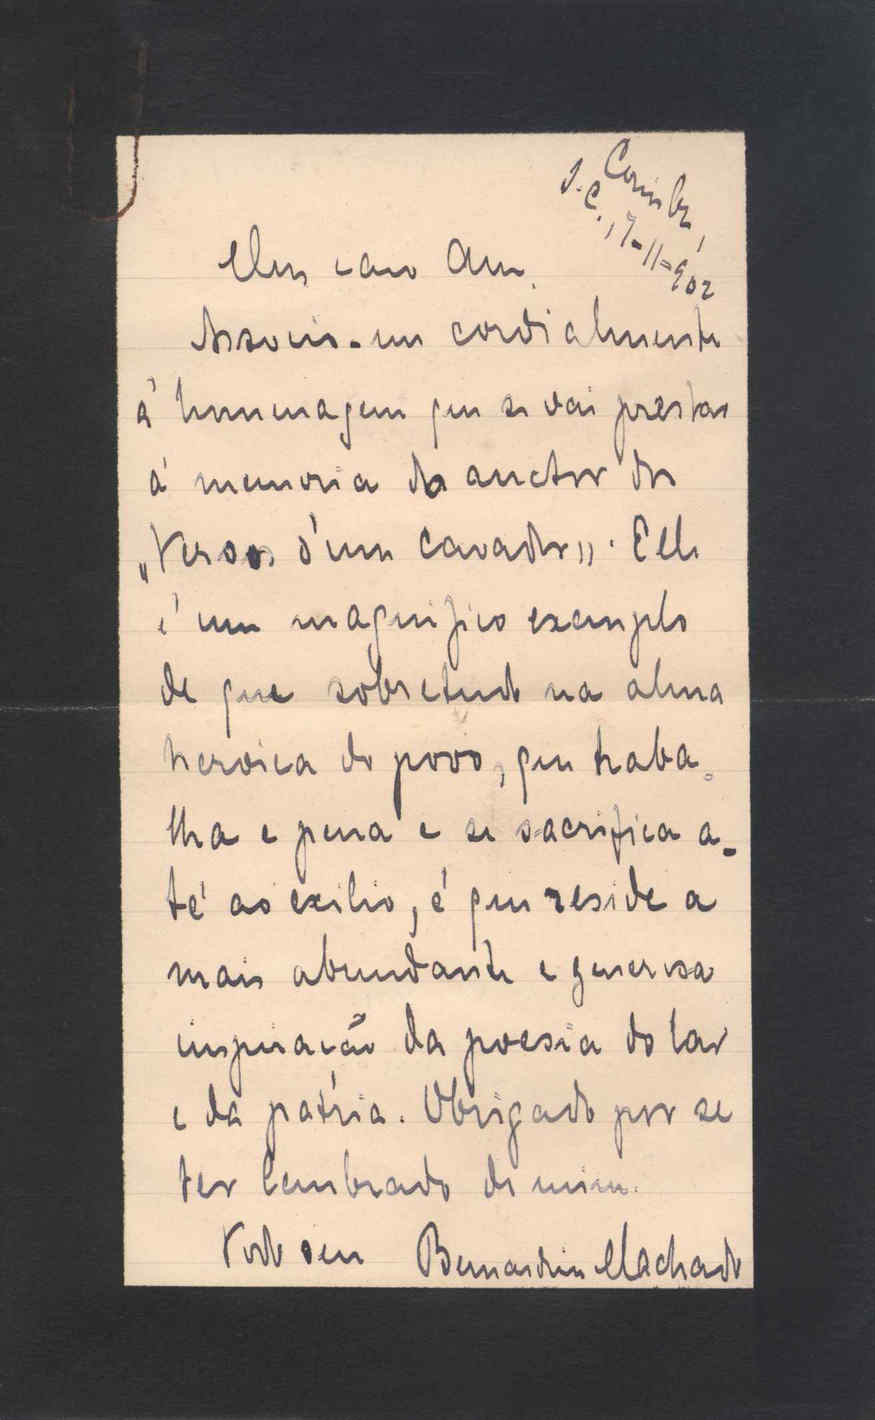 Coimbra,
S. C. 17-11-902
Meu caro Am.
Associo-me cordialmente
á homenagem que se vai prestar
á memoria do auctor dos
„Versos d'um Cavador”. Elle
é um magnifico exemplo
de que sobretudo na alma
heroica do povo, que traba-
lha e pena e se sacrifica a-
té ao exilio, é que reside a
mais abundante e generosa
inspiração da poesia do lar
e da pátria. Obrigado por se
ter lembrado de mim.
Todo seu Bernardino Machado